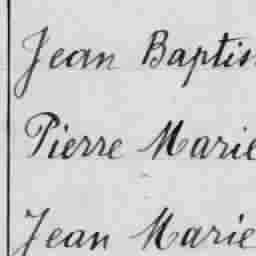 Jean Baptis
Pierre Marie
Jean Marie